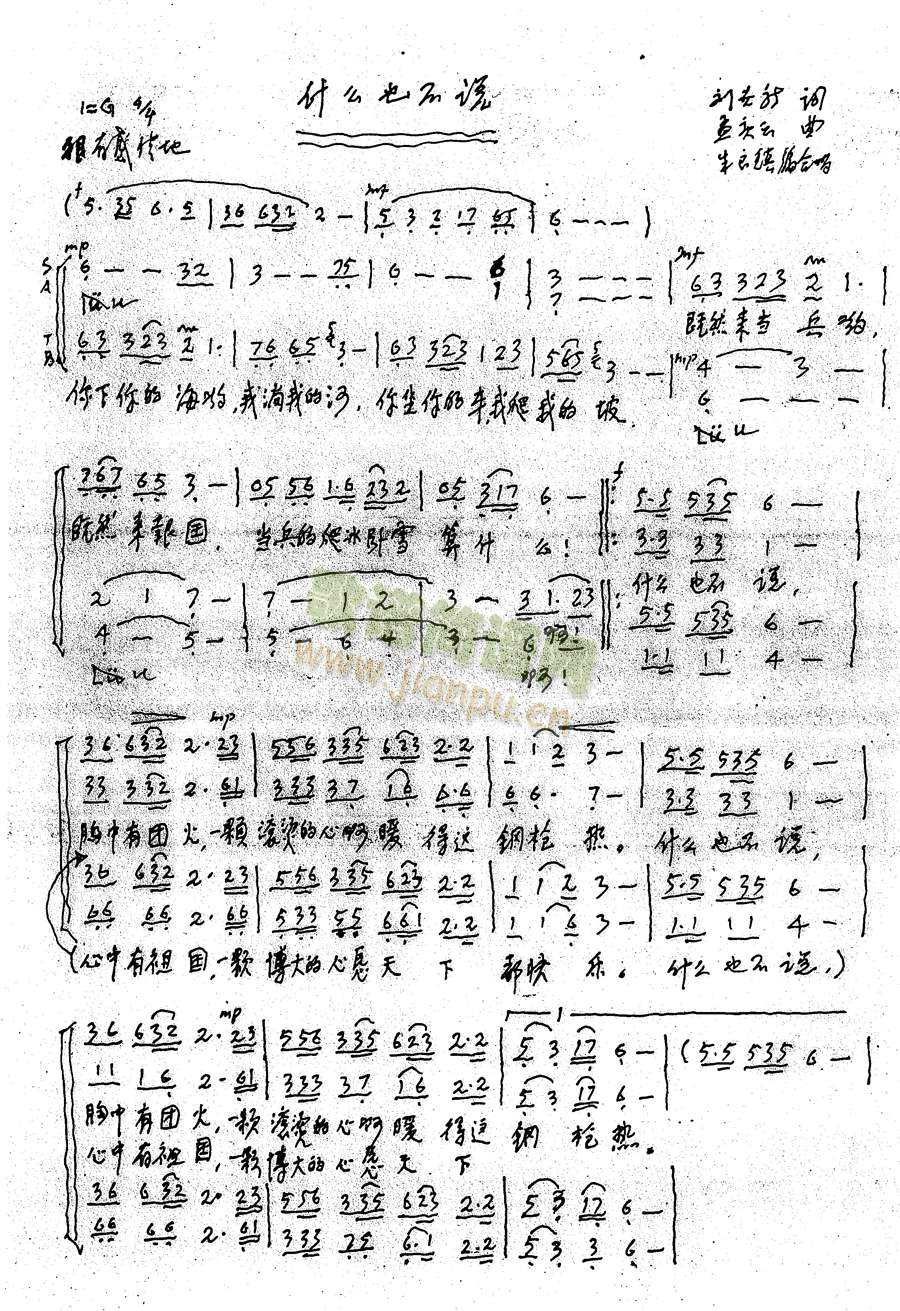 什么也不说
1=G 4/4
很有感情地
词
曲
编合唱
f mf
(5· 35 6·5 | 36 632 2 — | 5 3 2 17 65 | 6 — — — |
mp mf
S A 6 — — 32 | 3 — — 75 | 6 — — 6 1 | 3 — — — | 63 323 2 1· |
Lü u 既然来当兵哟,
T B 63 323 2 1· | 76 65 3 — | 63 323 1 23 | 565 3 — — | mp 4 — 3 — |
你下你的海哟,我淌我的河. 你坐你的车,我爬我的坡.
7 — — —
6 — — —
Lü u
767 65 3 — | 05 56 1·6 232 | 05 317 6 — | f 5·5 535 6 — |
3·3 33 1 — |
既然来报国. 当兵的爬冰卧雪算什么! 什么也不说,
2 1 7 — | 7 — 1 2 | 3 — 3 1·23 | 5·5 535 6 — |
4 — 5 — | 5 — 6 4 | 3 — 6 啊! | 1·1 11 4 — |
Lü u 啊!
歌谱简谱网
www.jianpu.cn
mp
36 632 2·23 | 556 335 623 2·2 | 1 12 3 — | 5·5 535 6 — |
33 332 2·61 | 333 37 16 6·6 | 6 6· 7 — | 3·3 33 1 — |
胸中有团火,一颗滚烫的心啊暖得这钢枪热。什么也不说,
36 632 2·23 | 556 335 623 2·2 | 1 12 3 — | 5·5 535 6 — |
66 66 2·66 | 533 55 661 2·2 | 1 16 3 — | 1·1 11 4 — |
(心中有祖国,一颗博大的心愿天下都快乐。什么也不说,)
mp 1
36 632 2·23 | 556 335 623 2·2 | 5 3 17 6 — | (5·5 535 6 — |
11 16 2·61 | 333 37 16 2·2 | 5 3 17 6 — |
胸中有团火,一颗滚烫的心啊暖得这钢枪热。
心中有祖国,一颗博大的心愿天下
36 632 2·23 | 556 335 623 2·2 | 5 3 17 6 — |
66 66 2·61 | 333 75 6·1 2·2 | 5 3 3 6 — |